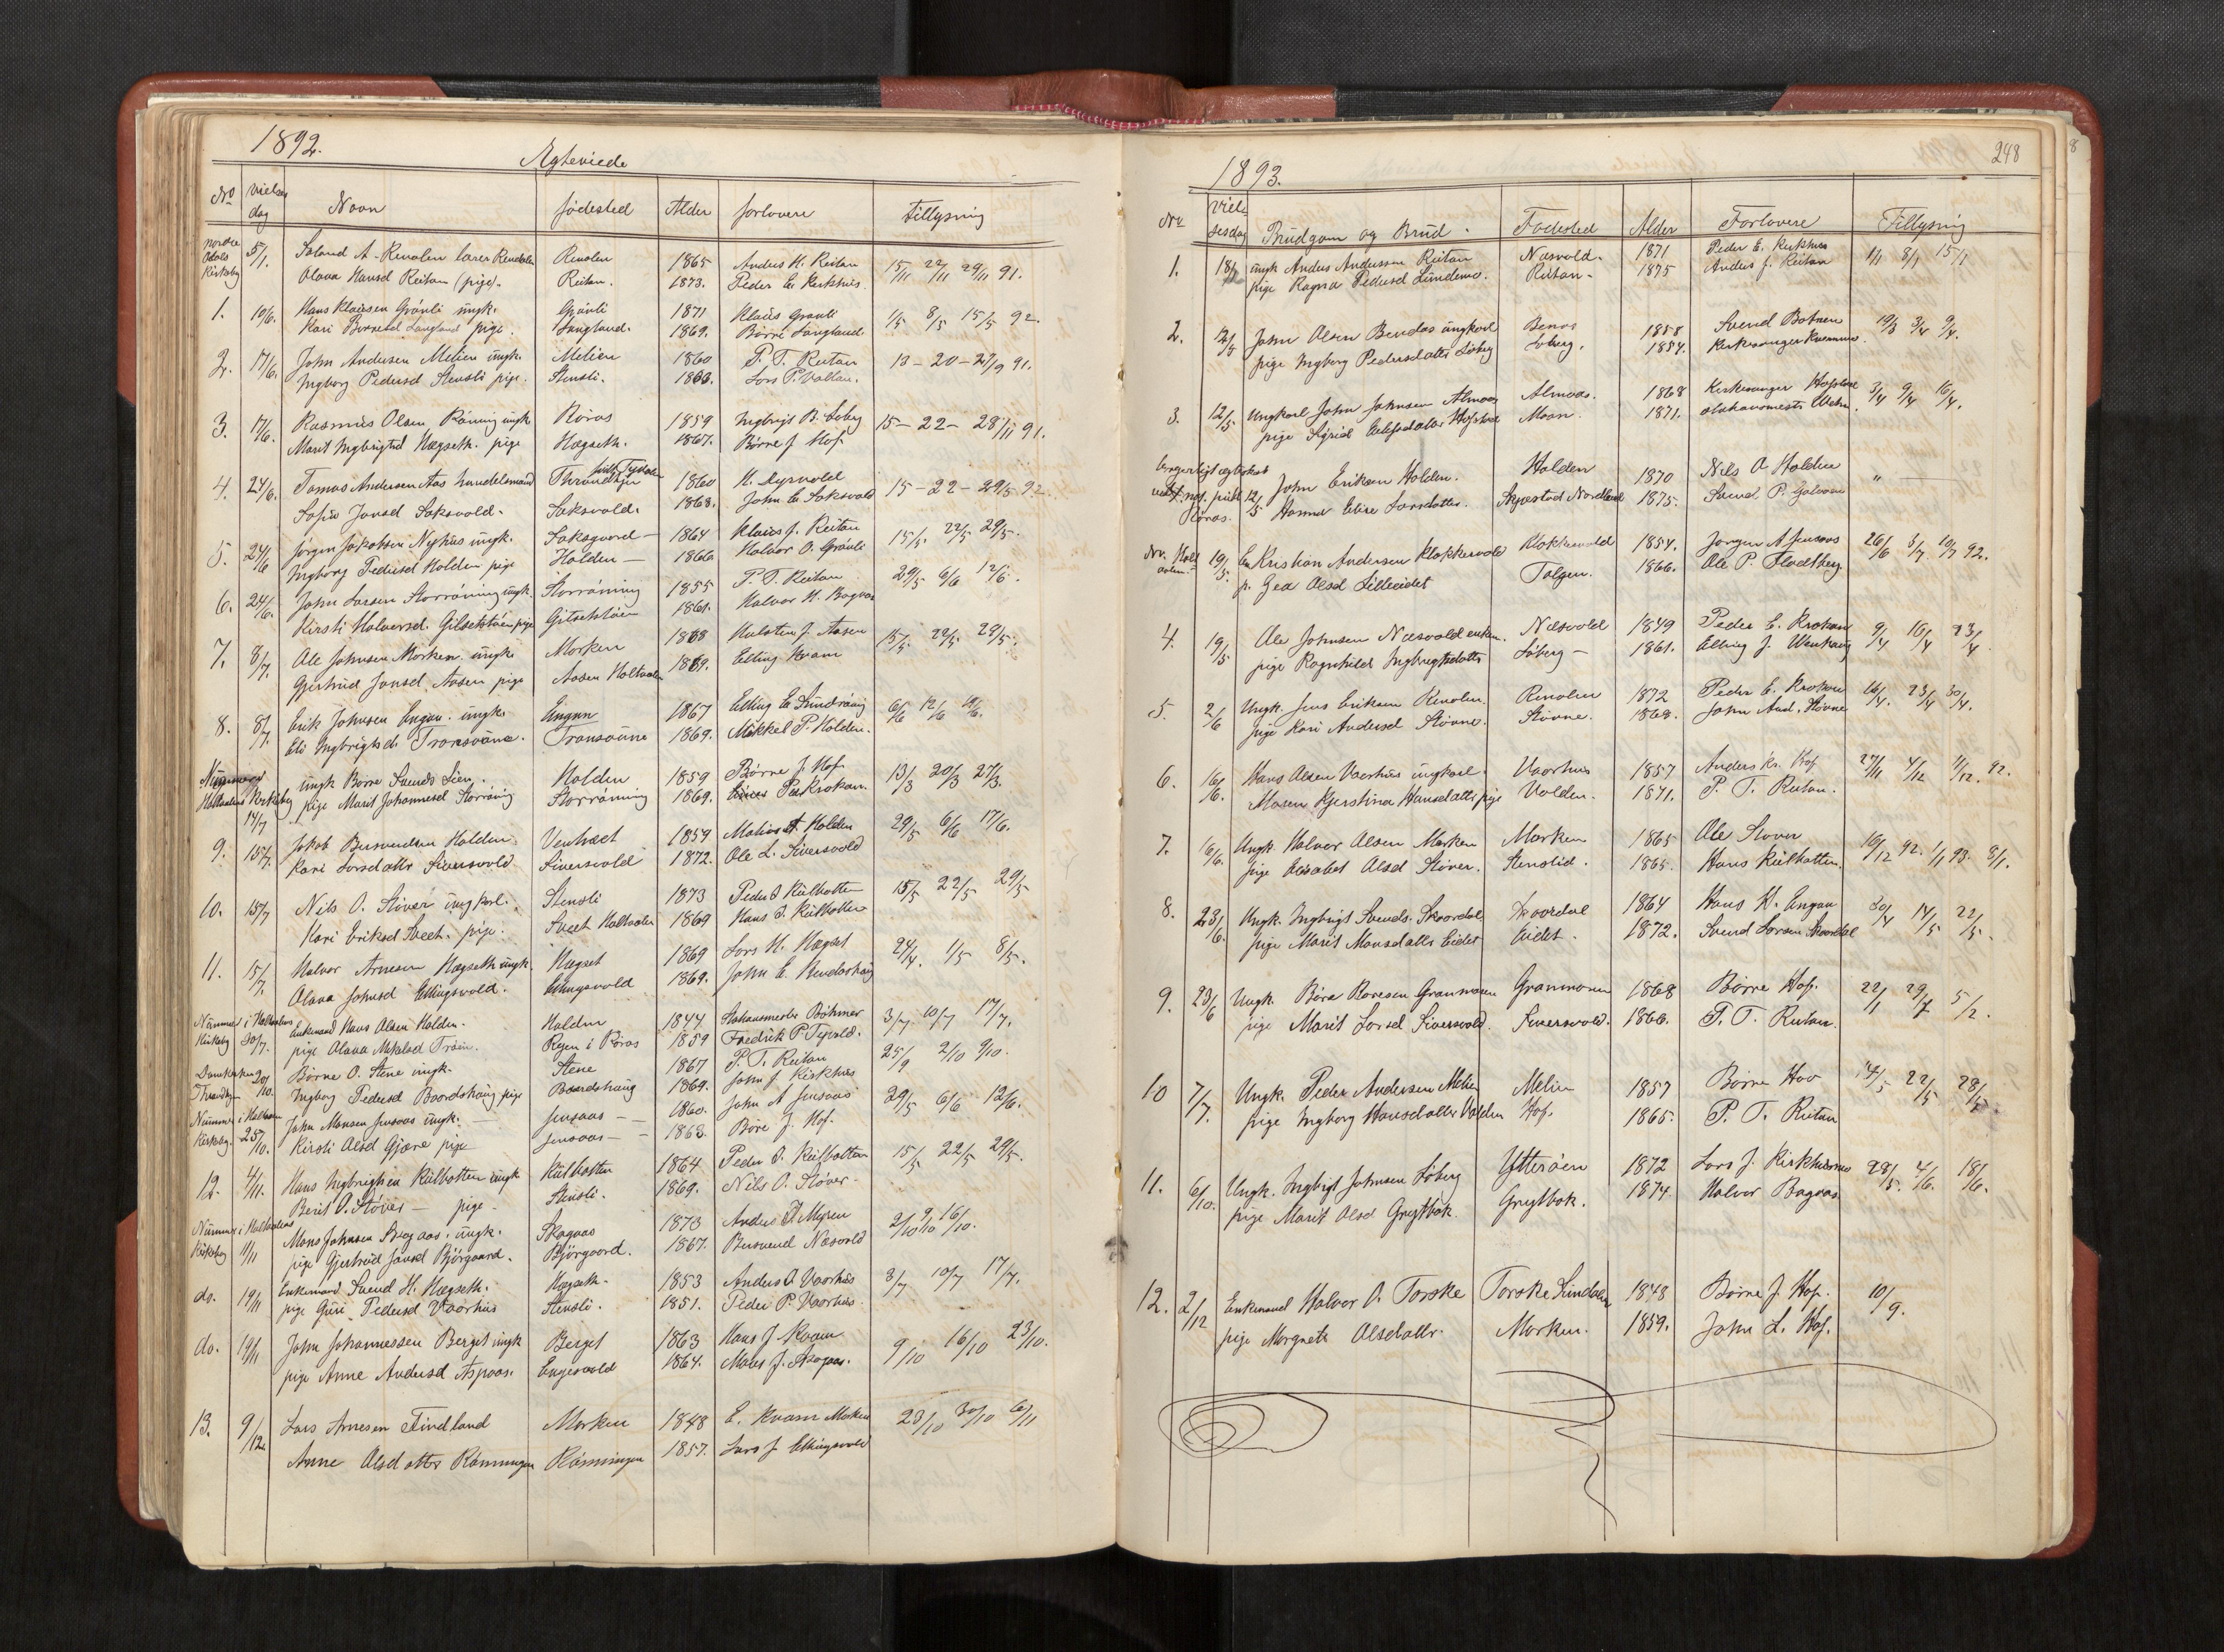 1892.
Ægteviede
No Vielses dag Navn födested Alder forlovere tillysning
nordre Odals Kirkeby 5/1. A. Renolen lærer Rendalen Renolen 1865 Anders H. Reitan 15/11 22/11 29/11 91.
Olava Hansd Reitan (pige). Reitan. 1873. Peder E. Kirkhus.
1. 10/6. Hans Klausen Grönli ungk. Grönli 1871 Klaus Grönli 1/5 8/5 15/5 92.
Kari Börresd Langland pige. Langland. 1869. Börre Langland
2. 17/6. John Andersen Melien ungk. Melien 1860 P. T. Reitan 13 - 20 - 27/9 91.
Ingborg Pedersd Stensli pige. Stensli. 1866. Lars P. Volden.
3. 17/6. Rasmus Olsen Röning ungk Röros 1859 Ingbrigt B. Löberg 15 - 22 - 28/11 91.
Marit Ingbrigtsd Hægseth. pige Hægseth. 1867. Börre J Hof
4. 24/6. Tomas Andersen Aas handelsmand Throndhjem 1860 K. Kyrvold 15 - 22 - 29/5 92.
Sofie Jonsd Saksvold. Saksvold. 1868. John E. Saksvold
5. 24/6 Jörgen Jakobsen Nyhus ungk. Saksgaard 1864 Klaus J. Reitan 15/5. 22/5 29/5.
Ingborg Pedersd Holden pige Holden 1866 Halvor O. Grönli
6. 24/6. John Larsen Storröning ungk. Storröning 1855 P. T. Reitan 29/5 6/6 12/6.
Kirsti Halvorsd. Gilsetstöen pige Gilsetstöen 1861. Halvor H. Bogaas
7. 8/7. Ole Johnsen Morken ungk. Morken 1868 Halsten J. Aasen 15/5. 22/5. 29/5.
Gjertrud Jonsd. Aasen pige Aasen Holtaalen 1869. Elling Kvam
8. 8/7. Erik Johnsen Engan. ungk. Engan 1867 Elling E. Sundröning 6/6 12/6 19/6.
Eli Ingbrigtsd. Tronsaune. Tronsaune 1869. Mikkel P. Holden.
Nummer i Holtaalens Kirkebog 14/7 ungk Börre Svends Lien. Holden 1859 Börre J. Hof 13/3 20/3 27/3.
pige Marit Johannesd Storröning Storröning 1869. Per Krokan.
9. 15/7. Jakob Bersvendsen Holden Venhæet 1859 Matias A. Holden 29/5 6/6 17/6.
Kari Larsdatter Siversvold Siversvold 1872. Ole L. Siversvold
10. 15/7 Nils O. Stöver ungkarl. Stensli 1873 Peder I Kulbotten 15/5 22/5 29/5
Kari Eriksd Svech. pige. Svech Holtaalen 1869 Hans I. Kulbotten
11. 15/7. Halvor Arnesen Hægseth ungk. Hægset 1869 Lars H. Hægset 24/4. 1/5 8/5.
Olava Johnsd Ellingsvold. Ellingsvold 1869. John E. Bendashaug
Nummer i Holtaalens Kirkebg 30/7. Enkemand Hans Olsen Holden. Holden 1844 Stationsmester Böhmer 3/7. 10/7 17/7.
pige Olava Mikalsd Tröen. Ryen i Röros 1859 Fredrik P. Tyvold.
Domkirken Throndhjem 20/10. Börre O. Stene ungk. Stene 1867 P. T. Reitan 25/9 2/10 9/10.
Ingborg Pedersd Baardshaug pige Baardshaug 1869. John J. Kirkhus
Nummer i Holtaalen Kirkebg. 25/10. John Monsen Jensaas ungk. Jensaas 1860. John A Jensaas 29/5 6/6 12/6.
Kirsti Olsd Gjære pige Jensaas 1863. Börre J. Hof.
12. 4/11. Hans Ingbrigtsen Kulbotten ungk Kulbotten 1864 Peder I. Kulbotten 15/5. 22/5 29/5.
Berit O. Stöver pige. Stensli. 1869. Nils O. Stöver.
Nummer i Holtaalens Kirkebog 11/11 Mons Johnsen Bogaas. ungk. 1873 Anders I. Myren 2/10 9/10 16/10.
pige Gjertrud Jonsd Björgaard. Björgaard. 1867. Bersvend Næsvold
do. 19/11 Enkemand Svend H. Hægseth. Hægseth. 1853 Anders O. Vaarhus 3/7 10/7 17/7.
pige Guri Pedersd Vaarhus Stensli. 1851. Peder P. Vaarhus.
do. 19/11 John Johannessen Berget ungk Berget 1863 Hans J. Kvam 9/10 16/10 23/10.
pige Anne Andersd Aspaas. Engesvold 1864. Mons J. Aspaas.
13. 9/12. Lars Arnesen Findland Morken 1848 E. Kvam Morken 23/10 30/10 6/11
Anne Olsdatter Rönningen Rönningen 1857. Lars J Ellingsvold
248
1893.
No Vielsesdag Brudgom og Brud. Födested Alder Forlovere Tillysning
1. 18/1 ungk Anders Andersen Reitan Næsvold. 1871 Peder E. Kirkhus 1/1 8/1 15/1
pige Ragna Pedersd Lundemo. Reitan. 1875 Anders J. Reitan
2. 12/5 John Olsen Bendos ungkarl Benos 1858 Svend Botnen 19/3 3/4 9/4.
pige Ingborg Pedersdatter Löberg Löberg. 1854. Kirkesanger
3. 12/5 Ungkarl John Johnsen Almaas Almaas. 1868 Kirkesanger Hofstad 3/4 9/4 16/4.
pige Sigrid Hofstad Moan. 1871.
borgerligt ægteskab ved not. publ. Röros. 12/5 John Eriksen Holden. Holden 1870 Nils O Holden "
Hanna Elise Larsdatter. Nordland 1875. Svend P. Galaaen
19/5. Em Kristian Andersen Klokkervold Klokkervold 1854. Jörgen A Jensaas 26/6 3/7 10/7 92.
p. Gea Olsd Lilleeidet Tolgen. 1866. Ole P. Flodtberg
4. 19/5 Ole Johnsen Næsvold enkem. Næsvold 1849 Peder E. Krokan 9/4 16/4 23/4.
pige Ragnhild Ingbrigtsdatter Löberg 1861. Elling J. Wenhaug
5. 2/6 Ungk. Jens Eriksen Renolen. Renolen 1872 Peder E. Krokan 16/4. 23/4 30/4.
pige Kari Andersd Stövne. Stövne. 1868. John And. Stövne
6. 16/6. Hans Olsen Vaarhus ungkarl. Vaarhus 1857 Anders Kr. Hof 27/11 4/12 11/12. 92.
Maren Kjerstina Hansdatter pige Volden. 1871. P. T. Reitan.
7. 16/6. Ungk Halvor Olsen Morken Morken 1865 Ole Stöver 16/12 92. 1/1 93. 8/1.
pige Elisabet Olsd Stöver. Stenslid. 1865. Hans Kulbotten.
8. 23/6. Ungk. Ingbrigt Svends. Skaardal Skaardal 1864 Hans H. Engan 30/4 14/5 22/5.
pige Marit Monsdatter Eidet Eidet. 1872. Svend Larsen Skaardal
9. 23/6 Ungk. Börre Börresen Granmoen Granmoen 1868 Börre Hof. 22/1 29/1 5/2.
pige Marit Larsd Siversvold. Siversvold. 1866. P. T. Reitan.
10 7/7. Ungk. Peder Andersen Melien Melien 1857 Börre Hov 14/5 22/5 28/5
pige Ingborg Hansdatter Volden Hof. 1865. P. T. Reitan
11. 6/10. Ungk. Ingbrigt Johnsen Löberg Ytteröen 1872 Lars J. Kirkhusmo 28/5. 4/6. 18/6.
pige Marit Olsd Grytbak. Grytbak. 1874. Halvor Bogaas.
12. 2/12 Enkemand Halvor O. Torske Torske Sundalen 1848 Börre J. Hof. 10/9.
pige Margrete Olsdatter. Morken. 1859. John L. Hof.